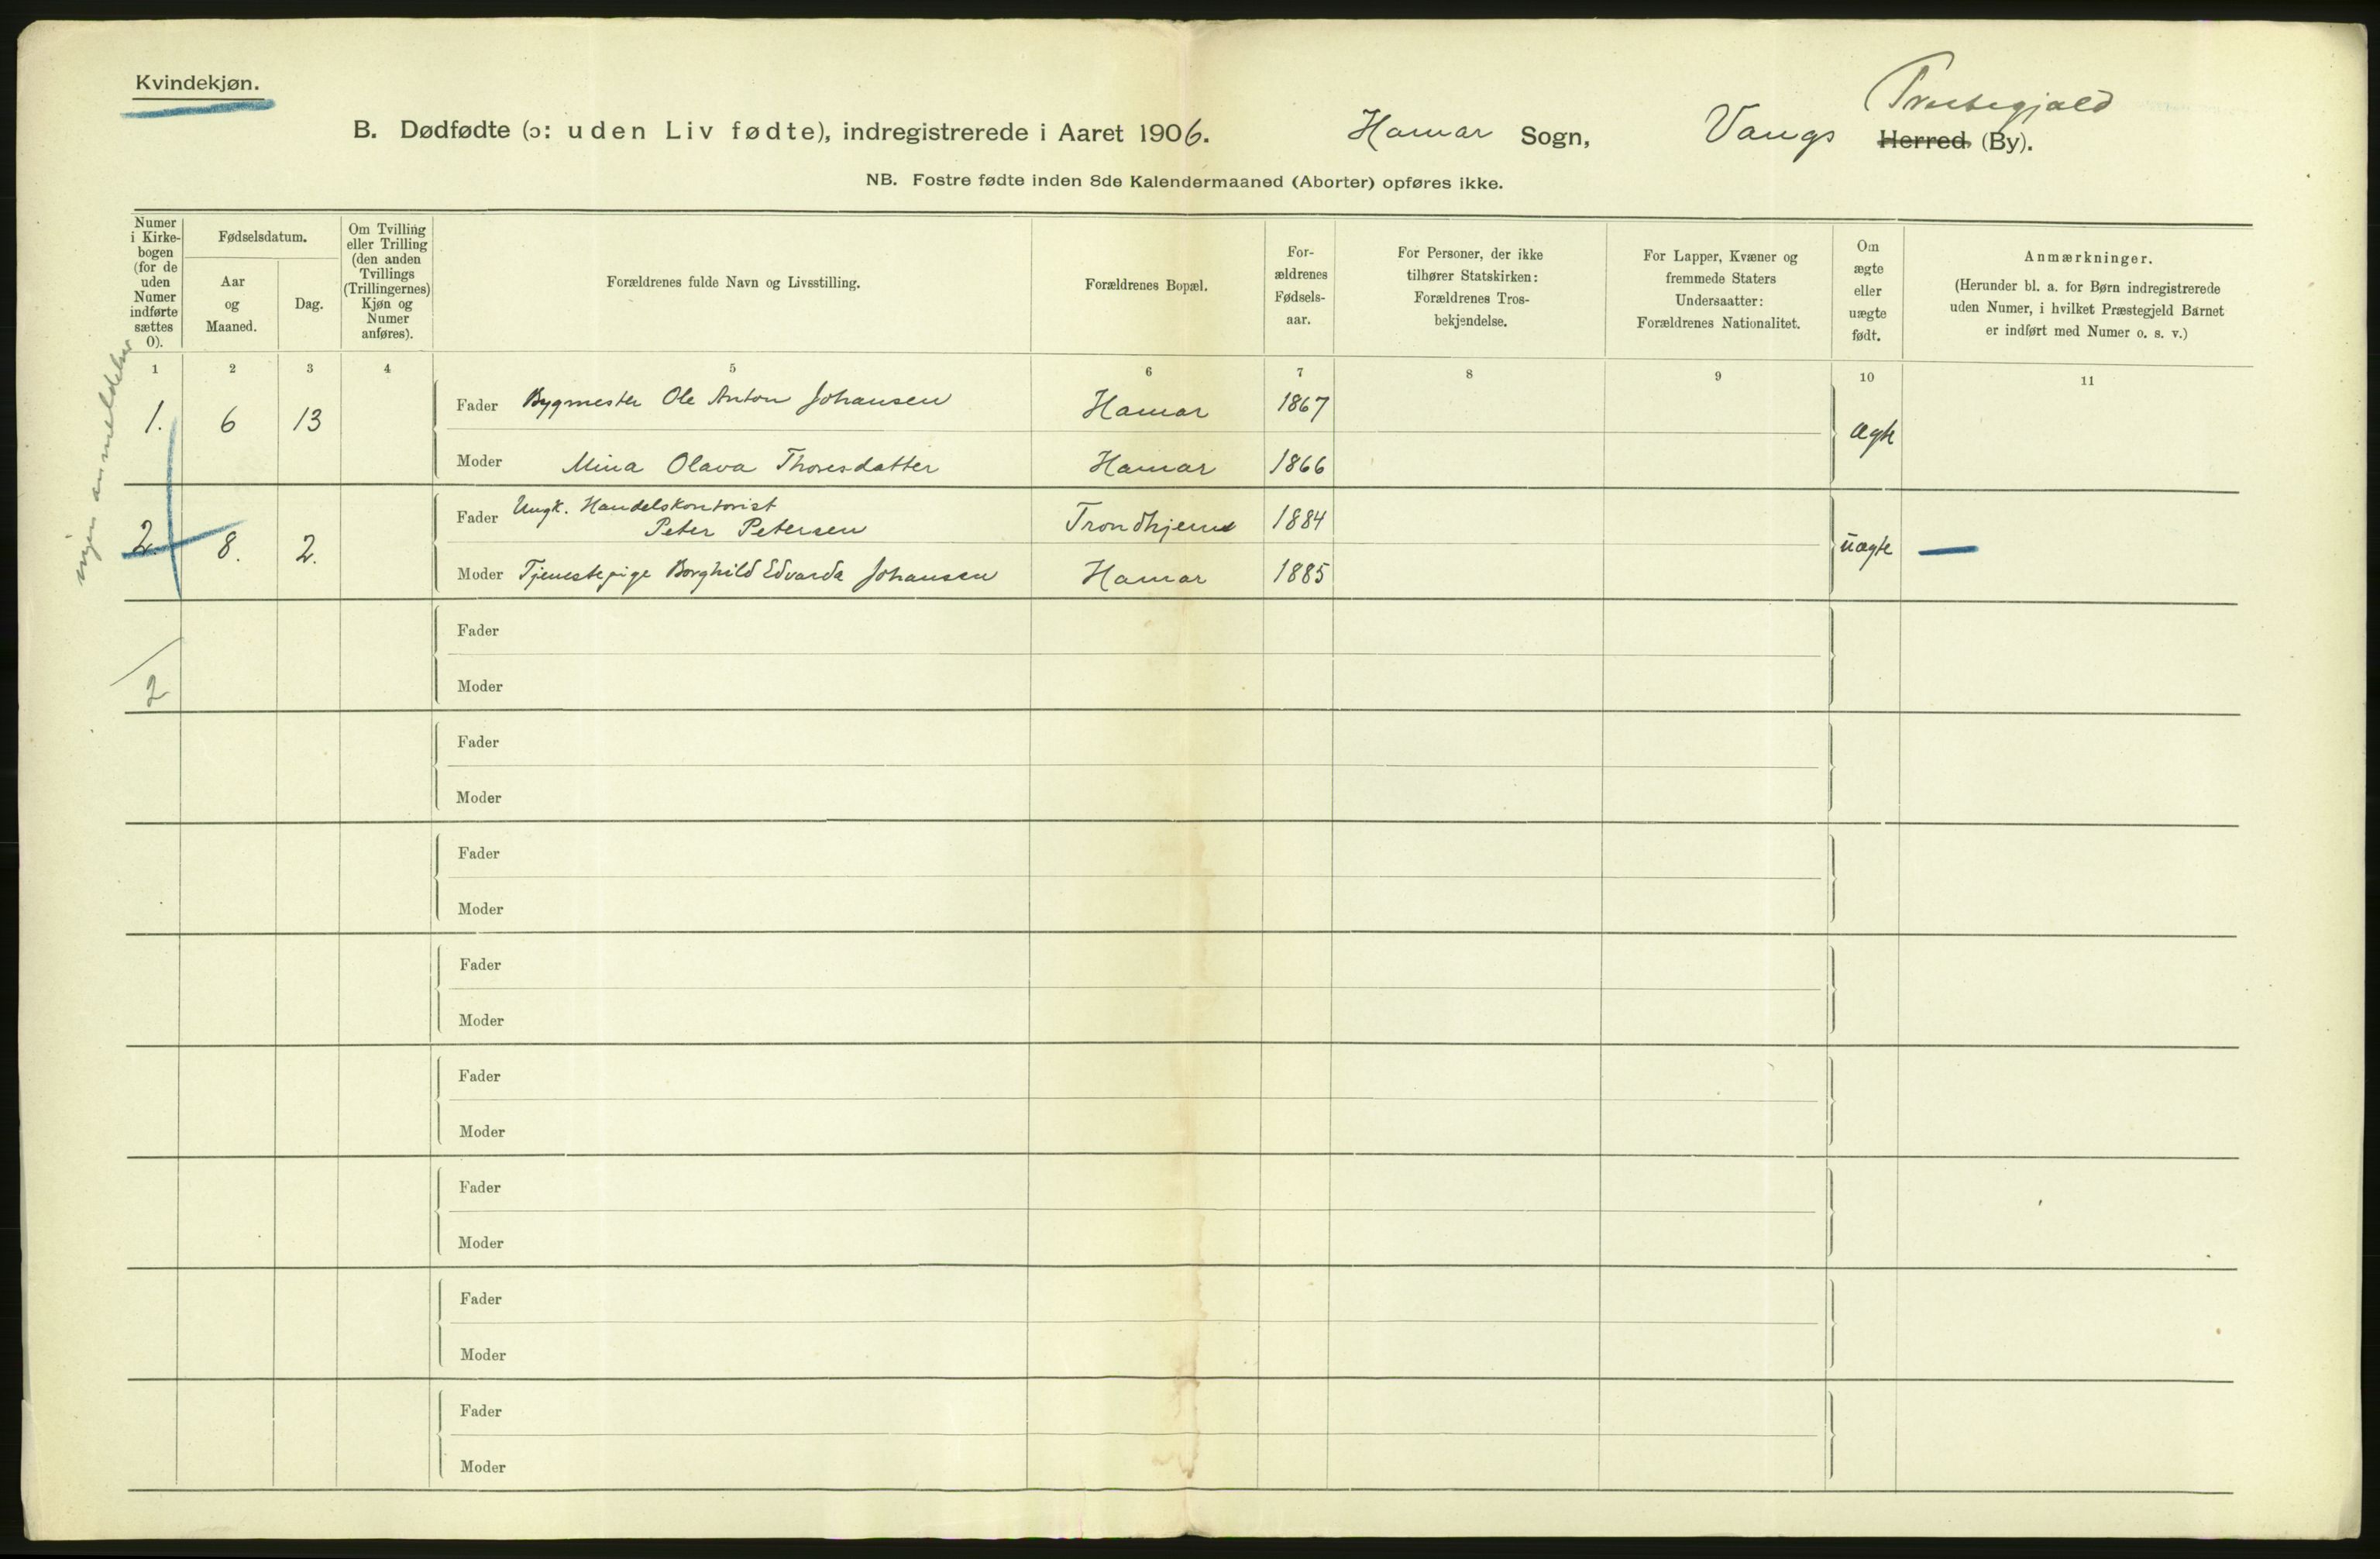 Kvindekjøn.
Præstegjæld
B. Dødfødte (ɔ: uden Liv fødte), indregistrerede i Aaret 1906. Hamar Sogn, Vangs Herred (By).
NB. Fostre fødte inden 8de Kalendermaaned (Aborter) opføres ikke.
Numer
i Kirke-
bogen
(for de
uden
Numer
indførte
sættes
0).
Fødselsdatum.
Aar
og
Maaned.
Dag.
Om Tvilling
eller Trilling
(den anden
Tvillings
(Trillingernes)
Kjøn og
Numer
anføres).
Forældrenes fulde Navn og Livsstilling.
Forældrenes Bopæl.
For-
ældrenes
Fødsels-
aar.
For Personer, der ikke
tilhører Statskirken:
Forældrenes Tros-
bekjendelse.
For Lapper, Kvæner og
fremmede Staters
Undersaatter:
Forældrenes Nationalitet.
Om
ægte
eller
uægte
født.
Anmærkninger.
(Herunder bl. a. for Børn indregistrerede
uden Numer, i hvilket Præstegjeld Barnet
er indført med Numer o. s. v.)
1 2 3 4 5 6 7 8 9 10 11
ingen anmeldelser
1. 6 13
Fader Bygmester Ole Anton Johansen Hamar 1867
ægte
Moder Mina Olava Thoresdatter Hamar 1866
2. 8. 2.
Fader Ungk. Handelskontorist
Peter Petersen Trondhjem 1884
uægte —
Moder Tjenestepige Borghild Edvarda Johansen Hamar 1885
Fader
2
Moder
Fader
Moder
Fader
Moder
Fader
Moder
Fader
Moder
Fader
Moder
Fader
Moder
Fader
Moder